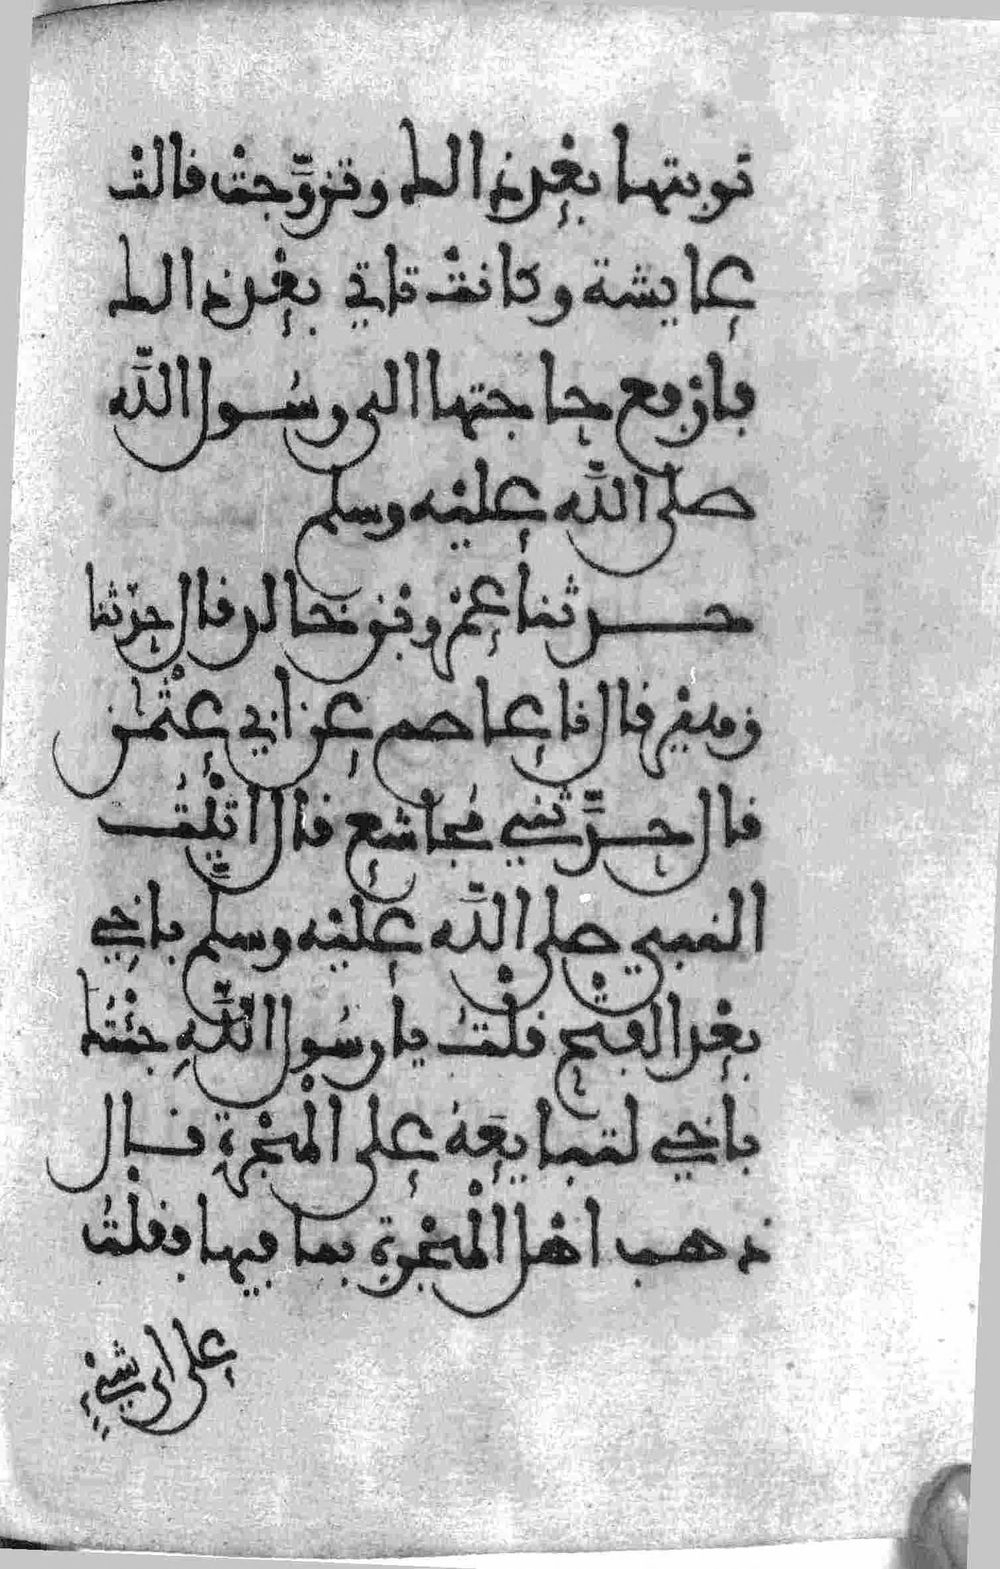 توبتها بعد ذلك وتزوجت قالت
عايشة وكانت تاتي بعد ذلك
فارفع حاجتها الى رسول الله
صلى الله عليه وسلم
حدثنا عمرو بن خالد قال حدثنا
زهير قال نا عاصم عن ابي عثمن
قال حدَّثني مُجاشع قال اتيْتُ
النبي صلى الله عليه وسلم باخي
بعد الفتح قلْتُ يا رسُول اللَّهِ جئْتُك
باخي لتبايعَهُ على الْهجْرة قال
ذهب اهْل الْهجْرة بما فيها فقلْتُ
على اى شيْءٍ